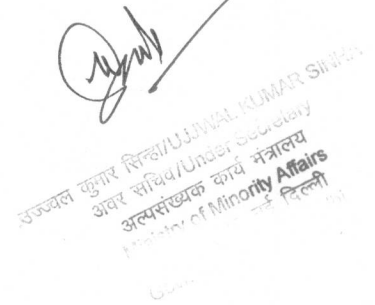 उज्ज्वल कुमार सिन्हा/UJJWAL KUMAR SINHA
अवर सचिव/Under Secretary
अल्पसंख्यक कार्य मंत्रालय
Ministry of Minority Affairs
नई दिल्ली